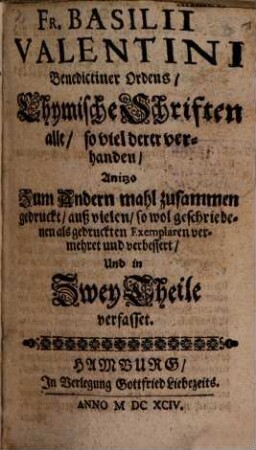 FR. BASILII
VALENTINI
Benedictiner Ordens/
Chymische Schriften
alle/ so viel derer ver-
handen/
Anitzo
Zum Andern mahl zusammen
gedruckt/ auß vielen/ so wol geschriebe-
nen als gedruckten Exemplaren ver-
mehret und verbessert/
Und in
Zwey Theile
verfasset.
HAMBURG/
In Verlegung Gottfried Liebezeits.
ANNO M DC XCIV.